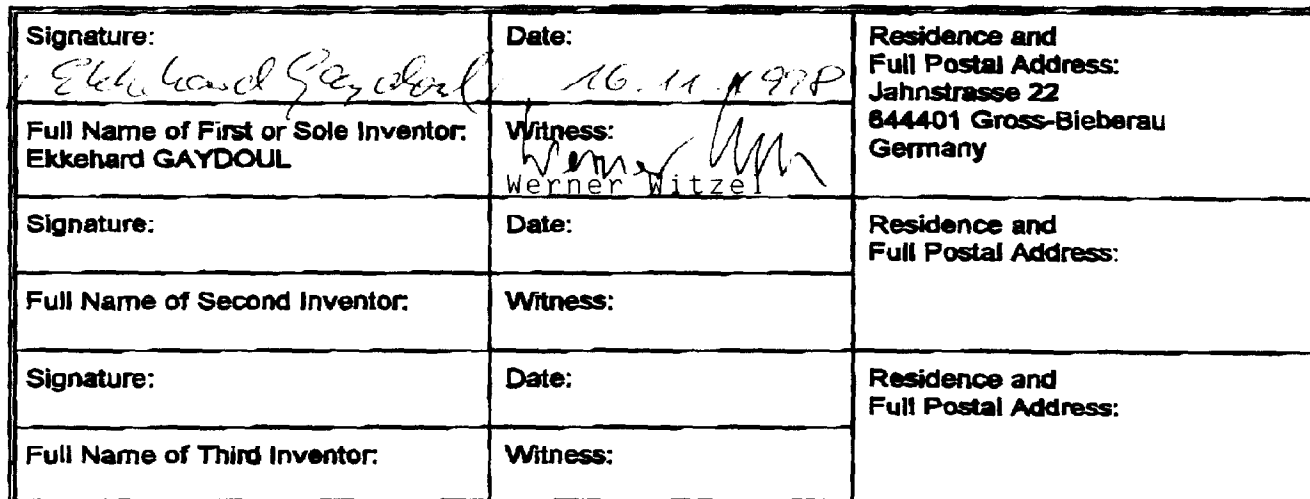 Signature:
Ekkehard Gaydoul
Date:
16.11.1998
Residence and
Full Postal Address:
Jahnstrasse 22
644401 Gross-Bieberau
Germany
Full Name of First or Sole Inventor:
Ekkehard GAYDOUL
Witness:
Werner
Werner Witzel
Signature:
Date:
Residence and
Full Postal Address:
Full Name of Second Inventor:
Witness:
Signature:
Date:
Residence and
Full Postal Address:
Full Name of Third Inventor:
Witness: